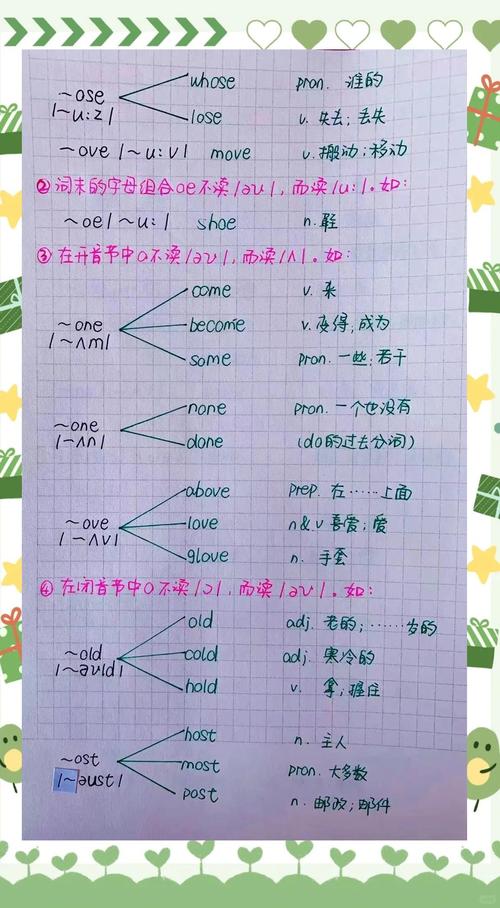 ~ose |~u:z|
whose pron. 谁的
lose v. 失去;丢失
~ove |~u:v| move v.搬动;移动
②词末的字母组合oe不读|əʊ|,而读|u:|.如:
~oe|~u:| shoe n.鞋
③在开音节中o不读|əʊ|,而读|ʌ|.如:
~one |~ʌm|
come v. 来
become v.变得,成为
some pron.一些;若干
~one |~ʌn|
none pron.一个也没有
done (do的过去分词)
~ove |~ʌv|
above prep.在……上面
love n&v喜爱;爱
glove n. 手套
④在闭音节中o不读|ɔ|,而读|əʊ|.如:
~old |~əʊld|
old adj.老的;……岁的
cold adj.寒冷的
hold v. 拿;握住
~ost |~əust|
host n.主人
most pron.大多数
post n.邮政;邮件